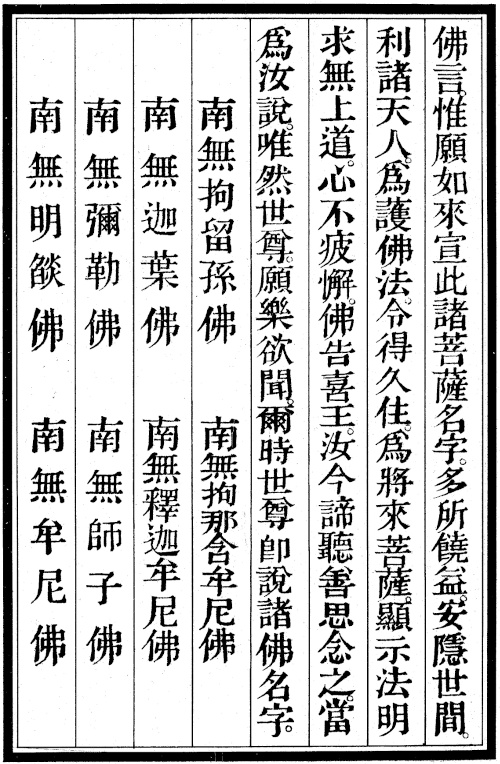 佛言。惟願如來宣此諸菩薩名字。多所饒益。安隱世間。
利諸天人。爲護佛法。令得久住。爲將來菩薩。顯示法明
求無上道。心不疲懈。佛告喜王。汝今諦聽善思念之。當
爲汝說。唯然世尊。願樂欲聞。爾時世尊卽說諸佛名字。
南無拘留孫佛 南無拘那含牟尼佛
南無迦葉佛 南無釋迦牟尼佛
南無彌勒佛 南無師子佛
南無明燄佛 南無牟尼佛